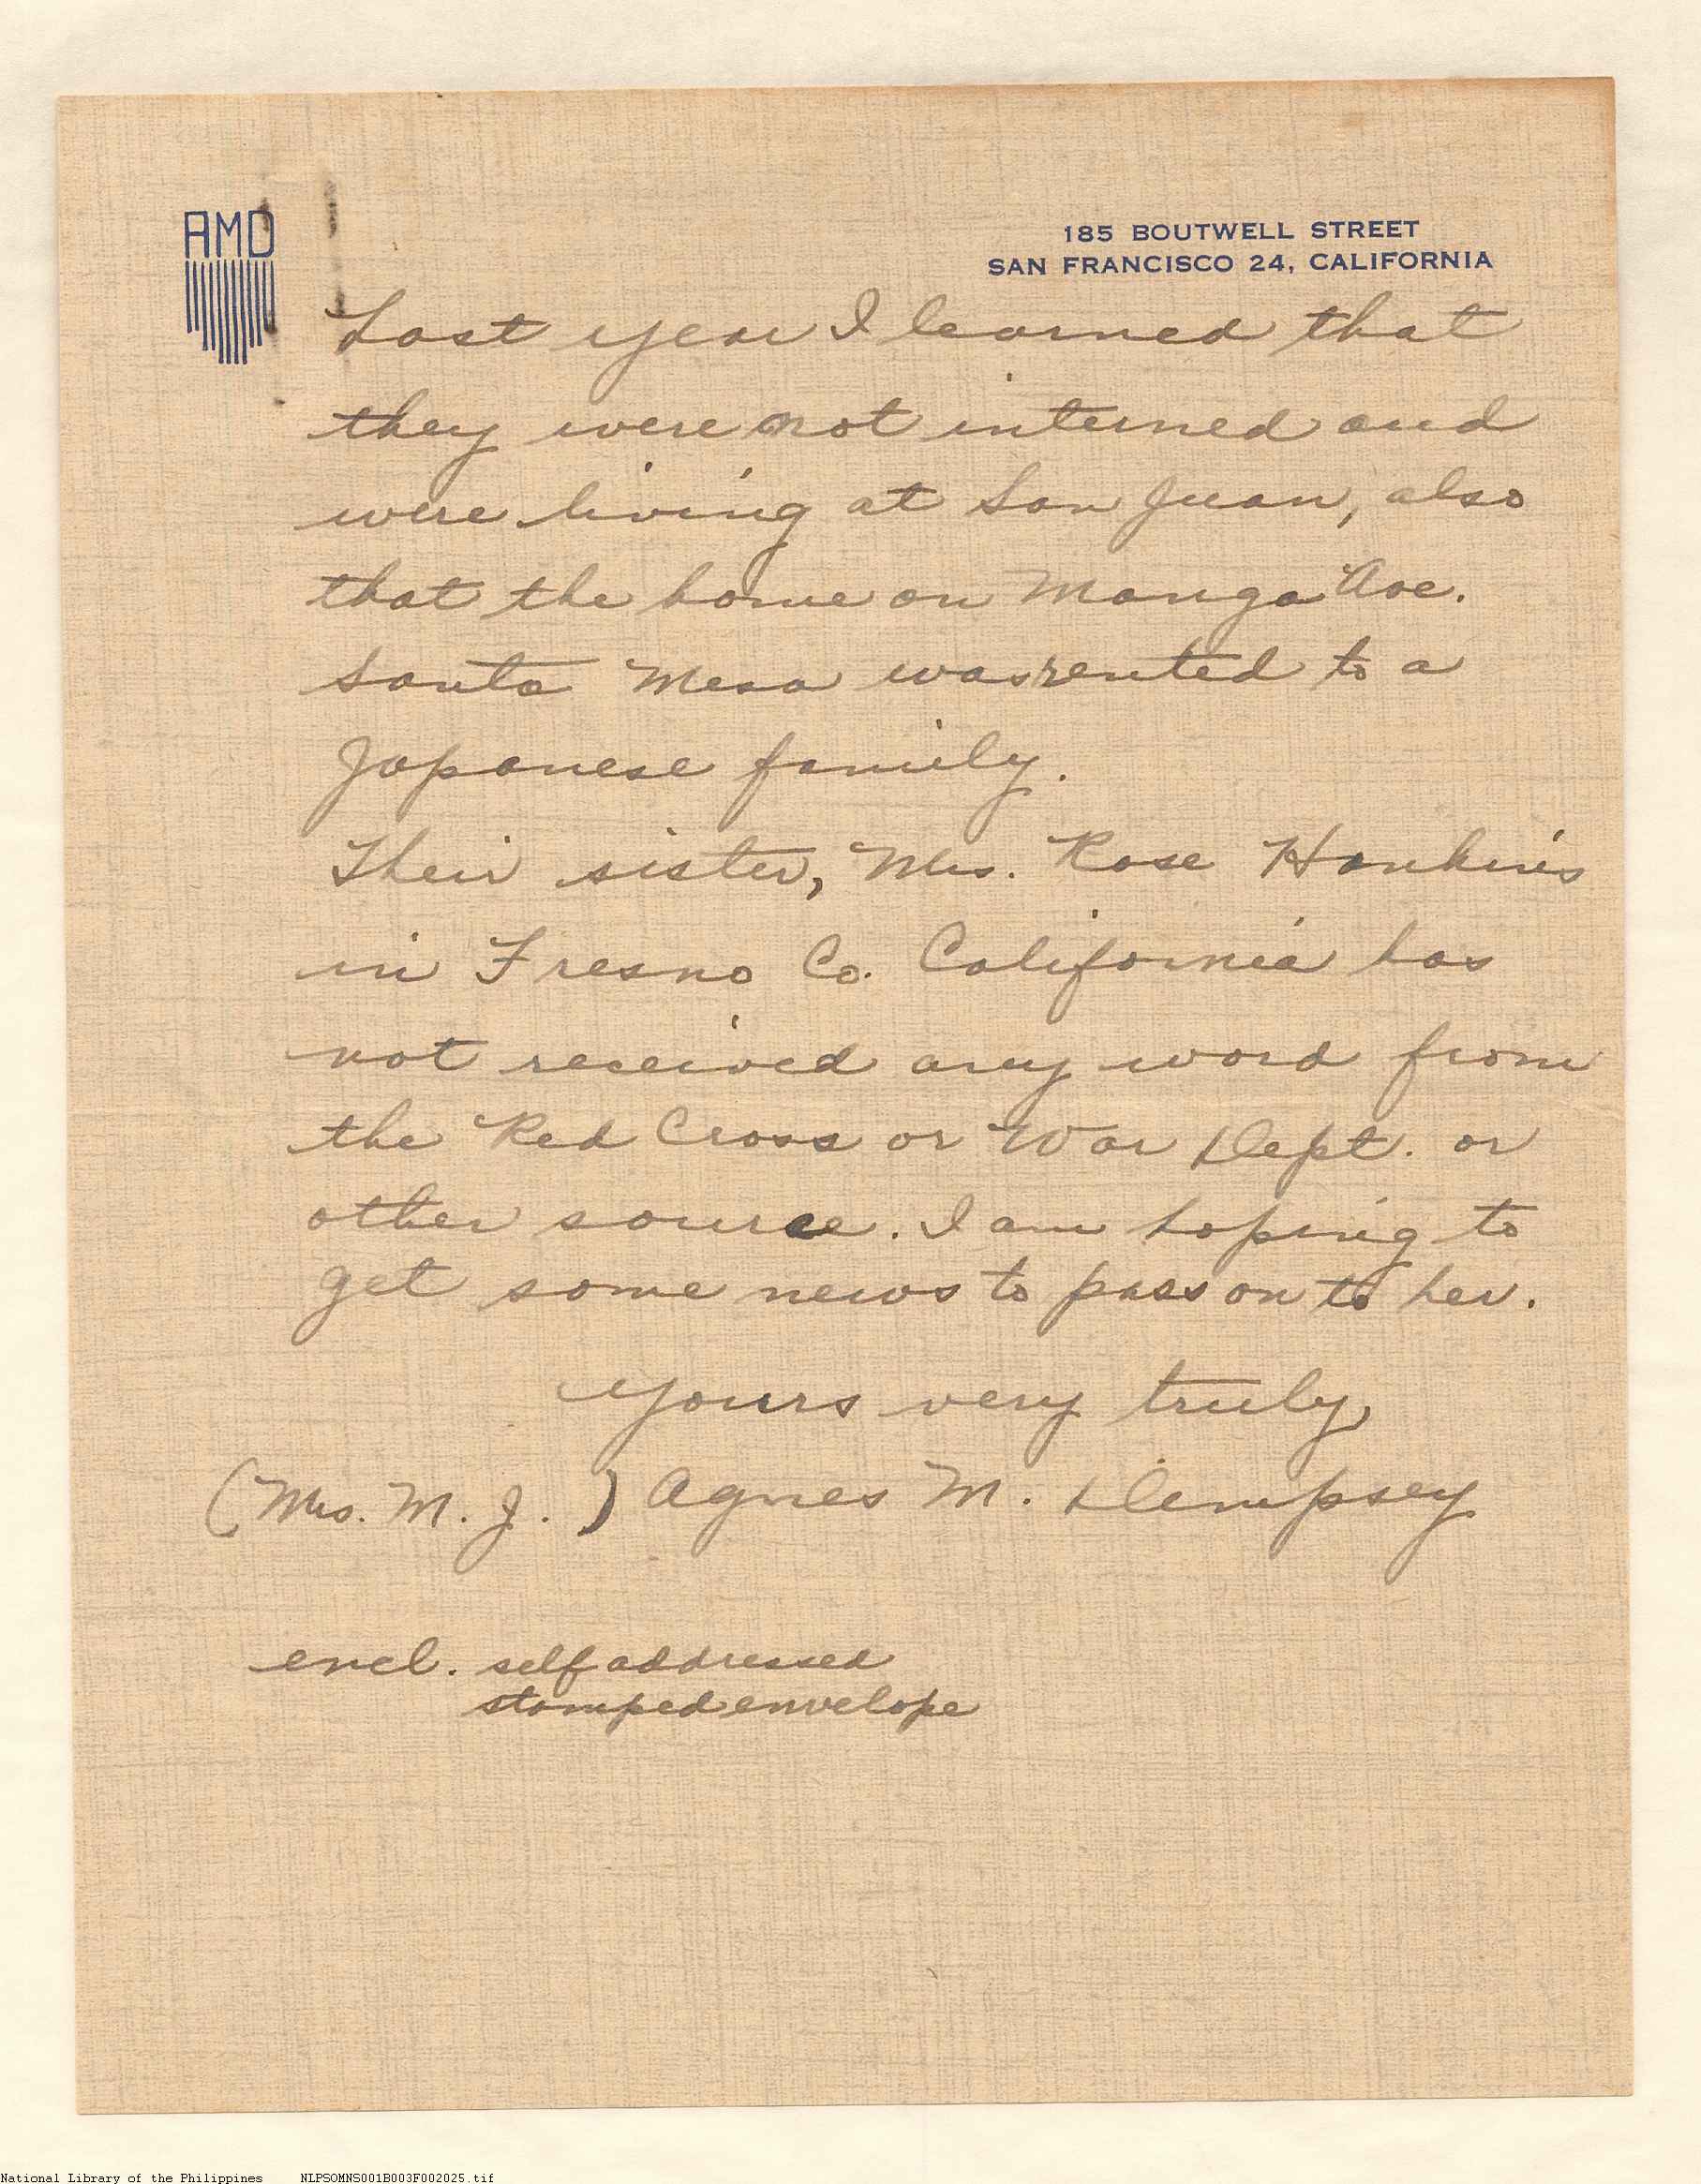 AMD
185 BOUTWELL STREET
SAN FRANCISCO 24, CALIFORNIA
Last year I learned that
they were not interned and
were living at San Juan, also
that the home on Manga Ave.
Santa Mesa was rented to a
Japanese family.
Their sister, Mrs. Rose Hankins
in Fresno Co. California has
not received any word from
the Red Cross or War Dept. or
other source. I am hoping to
get some news to pass on to her.
Yours very truly,
(Mrs. M. J. ) Agnes M. Dempsey
encl. self addressed
stamped envelope
National Library of the Philippines NLPSOMNS001B003F002025.tif